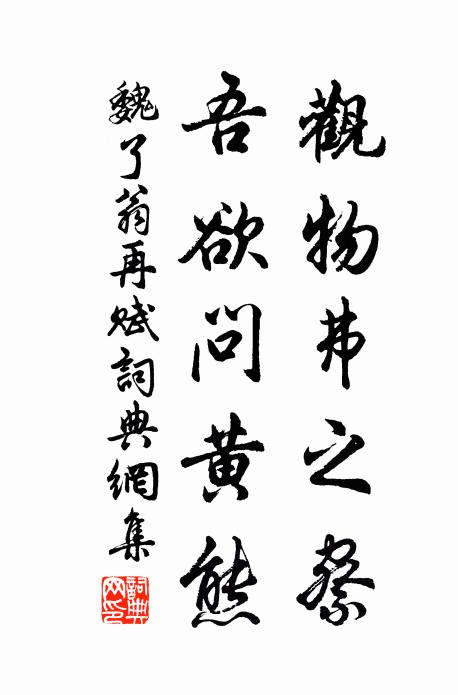 觀物弗之察
吾欲問黃熊
魏了翁再賦詞典網集
詞典網印